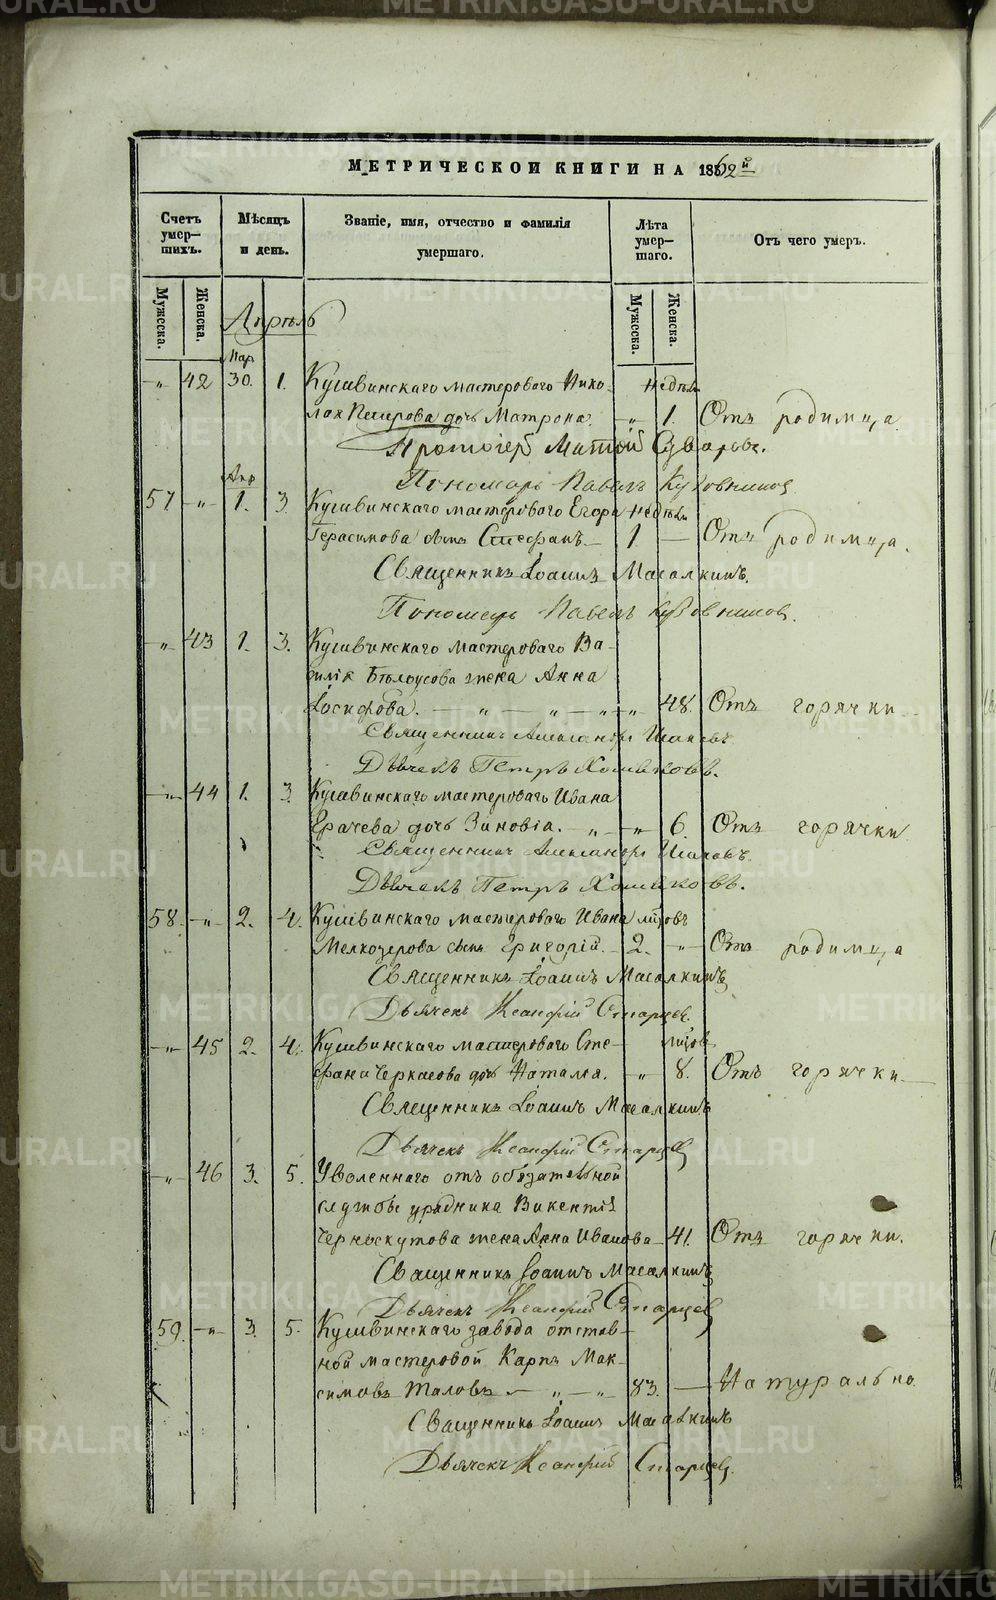 МЕТРИЧЕСКОЙ КНИГИ НА 1862й
Счетъ умер-шихъ. Мѣсяцъ и день. Званіе, имя, отчество и фамилія умершаго. Лѣта умер-шаго. Отъ чего умеръ.
Мужеска. Женска. Мужеска. Женска.
Апрѣль
Мар
-„- 42 30. 1. Кушвинскаго мастероваго Нико- недѣл.
лая Петрова дочь Матрона. „ 1. Отъ родимца
Протоіерей Суваровъ.
Пономарь Павелъ Кузовниковъ
Апр
57 -„- 1. 3 Кушвинскаго мастероваго Егора недѣл.
Герасимова сынъ Стефанъ. 1 — Отъ родимца.
Священникъ Іоаннъ Масалкинъ.
Пономарь Павелъ Кузовниковъ.
-„- 43 1. 3. Кушвинскаго мастероваго Ва-
силія Бѣлоусова жена Анна
Іосифова. — „ — „ — „ -„- 48. Отъ горячки
Священникъ Александръ Ишановъ
Дьячекъ Петръ Хомяковъ.
-„- 44 1. 3. Кушвинскаго мастероваго Ивана
Ерачева дочь Зиновія. — „ -„- 6. Отъ горячки
Священникъ Александръ Ишановъ.
Дьячекъ Петръ Хомяковъ.
58. -„- 2. 4. Кушвинскаго мастероваго Ивана мѣсов
Мелкозерова сынъ Григорій. — 2. -„- Отъ родимца
Священникъ Іоаннъ Масалкинъ
Дьячекъ Ксанфій Старцев.
-„- 45 2. 4. Кушвинскаго мастероваго Сте- мѣсов
фана Черкасова дочь Наталья. -„- 8. Отъ горячки
Священникъ Іоаннъ Масалкинъ
Дьячекъ Ксанфій Старцев
-„- 46 3. 5. Уволеннаго отъ обязательной
службы урядника Викентія
Черноскутова жена Анна Иванова — 41. Отъ горячки.
Священникъ Іоаннъ Масалкинъ
Дьячекъ Ксанфій Старцев
59. -„- 3. 5. Кушвинскаго завода отстав-
ной мастеровой Карпъ Мак-
симовъ Таловъ — „ — „ 83. — Натурально
Священникъ Іоаннъ Масалкинъ
Дьячекъ Ксанфій Старцев.
METRIKI.GASO-URAL.RU